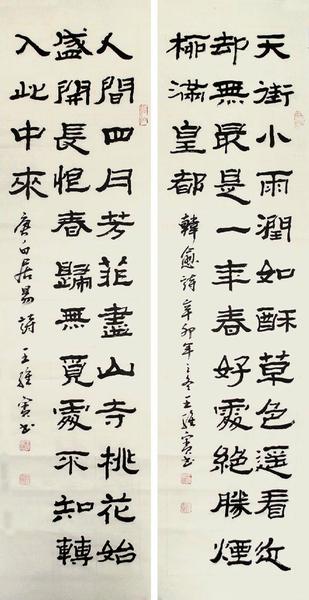 天街小雨潤如酥草色遥看近
却無最是一年春好處絕勝煙
柳滿皇都
韓愈詩辛卯年之冬王
人間四月芳菲盡山寺桃花始
盛開長恨春歸無覓處不知轉
入此中來
唐白居易詩王